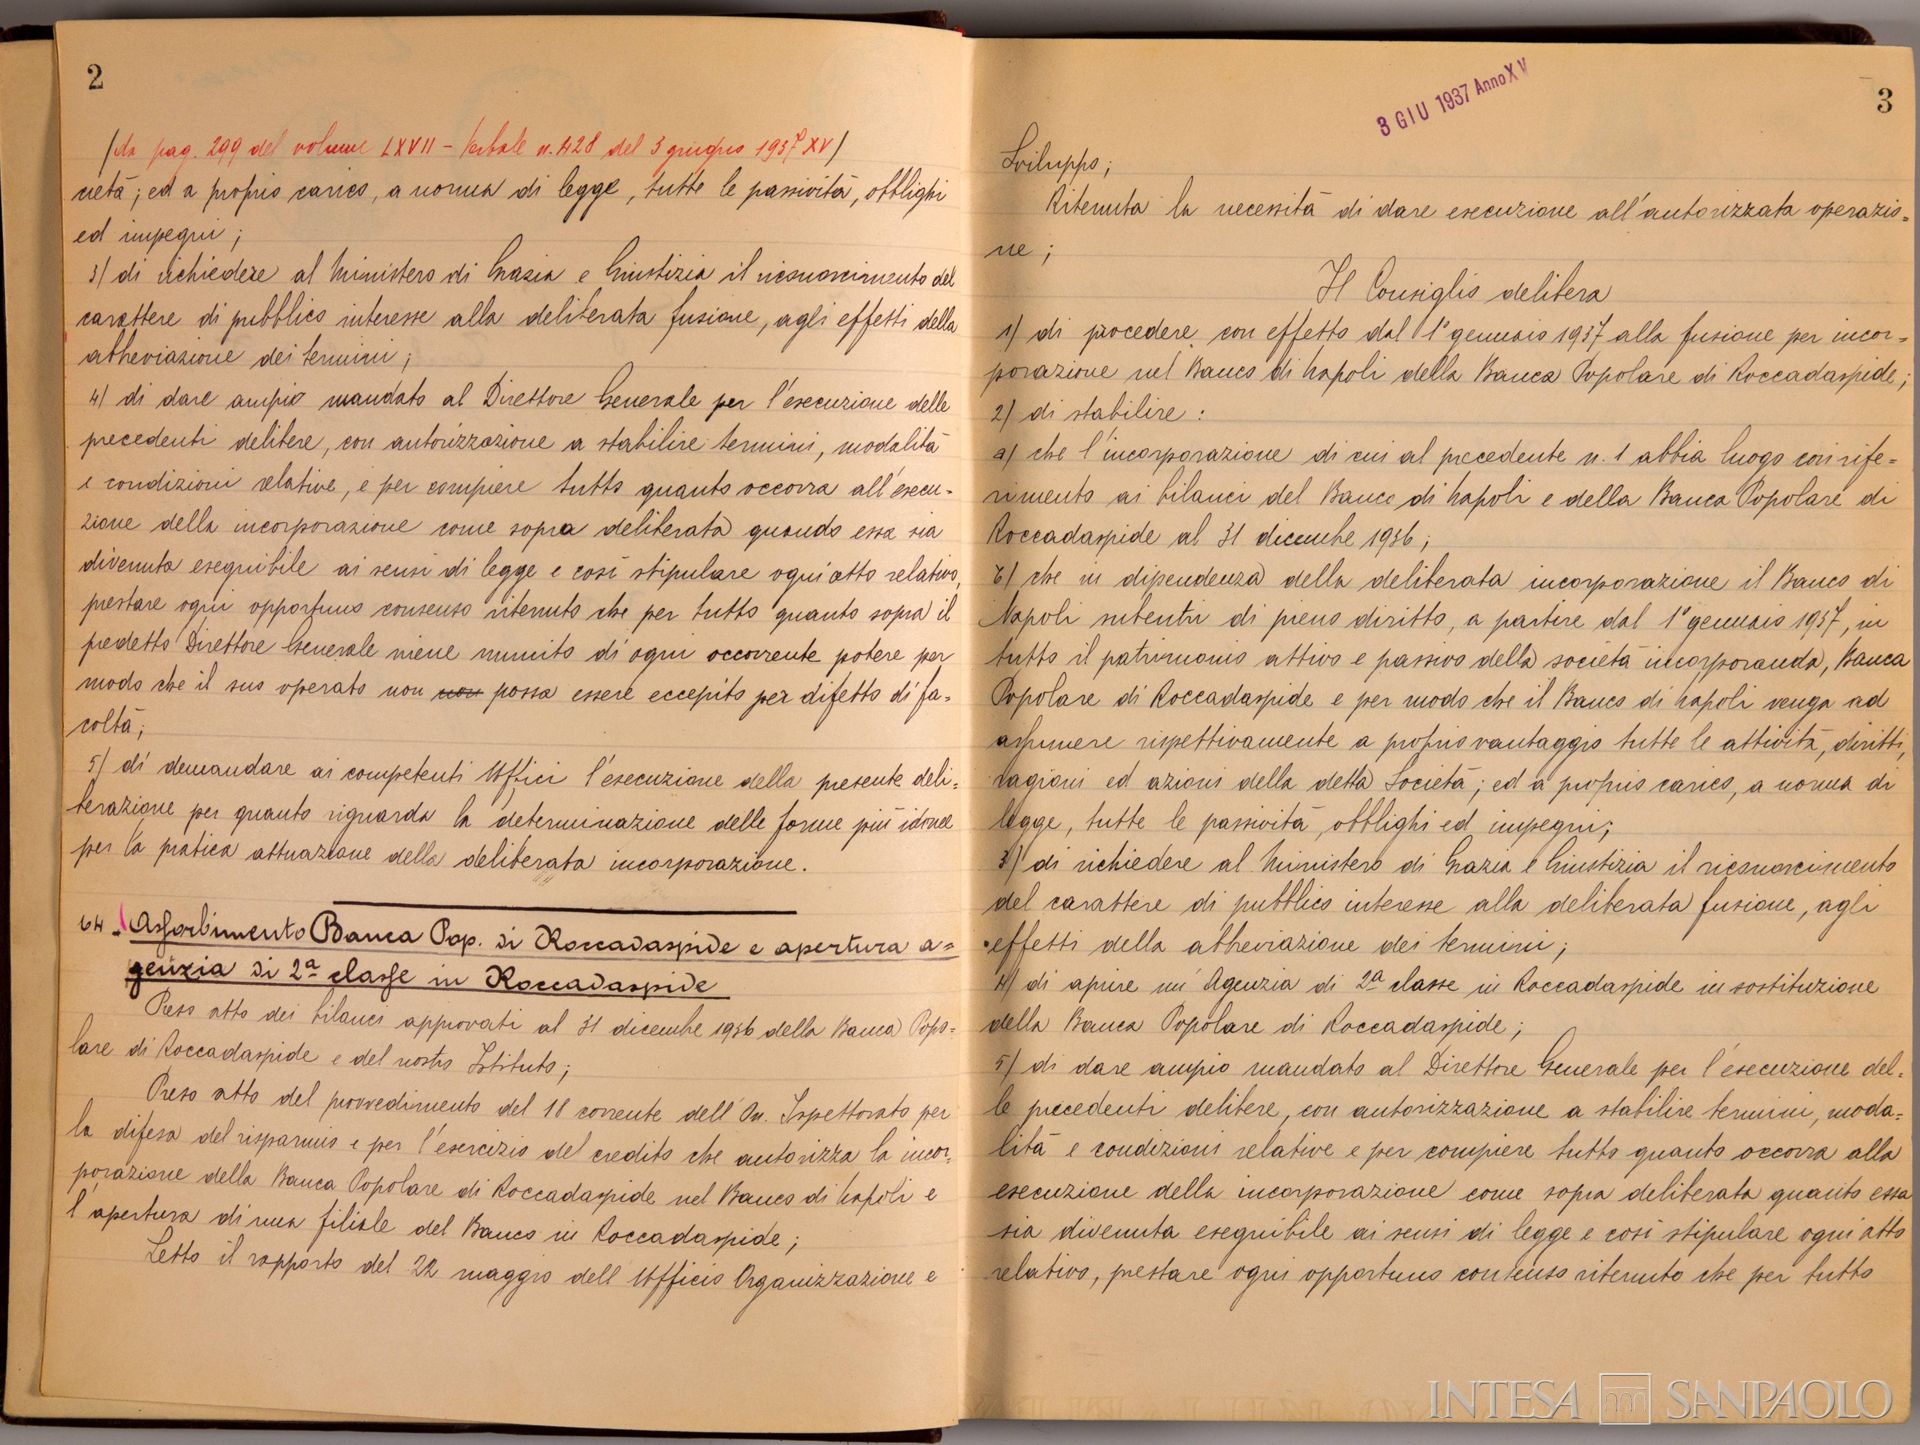 2
(da pag. 299 del volume LXVII - Verbale n. 428 del 3 giugno 1937 XV)
cietà; ed a proprio carico, a norma di legge, tutte le passività, obblighi
ed impegni;
3) di richiedere al Ministero di Grazia e Giustizia il riconoscimento del
carattere di pubblico interesse alla deliberata fusione, agli effetti della
abbreviazione dei termini;
4) di dare ampio mandato al Direttore Generale per l'esecuzione delle
precedenti delibere, con autorizzazione a stabilire termini, modalità
e condizioni relative, e per compiere tutto quanto occorra all'esecu=
zione della incorporazione come sopra deliberata quando essa sia
divenuta eseguibile ai sensi di legge e così stipulare ogni atto relativo,
prestare ogni opportuno consenso ritenuto che per tutto quanto sopra il
predetto Direttore Generale viene munito di ogni occorrente potere per
modo che il suo operato non non possa essere eccepito per difetto di fa=
coltà;
5) di demandare ai competenti Uffici l'esecuzione della presente deli=
berazione per quanto riguarda la determinazione delle forme più idonee
per la pratica attuazione della deliberata incorporazione.
64 - Assorbimento Banca Pop. di Roccadaspide e apertura a=
genzia di 2ª classe in Roccadaspide
Preso atto dei bilanci approvati al 31 dicembre 1936 della Banca Popo=
lare di Roccadaspide e del nostro Istituto;
Preso atto del provvedimento del 18 corrente dell'On. Ispettorato per
la difesa del risparmio e per l'esercizio del credito che autorizza la incor=
porazione della Banca Popolare di Roccadaspide nel Banco di Napoli e
l'apertura di una filiale del Banco in Roccadaspide;
Letto il rapporto del 22 maggio dell'Ufficio Organizzazione e
3 GIU 1937 Anno XV
3
Sviluppo;
Ritenuta la necessità di dare esecuzione all'autorizzata operazio=
ne;
Il Consiglio delibera
1) di procedere, con effetto dal 1° gennaio 1937, alla fusione per incor=
porazione nel Banco di Napoli della Banca Popolare di Roccadaspide;
2) di stabilire:
a) che l'incorporazione di cui al precedente n. 1 abbia luogo con rife=
rimento ai bilanci del Banco di Napoli e della Banca Popolare di
Roccadaspide al 31 dicembre 1936;
b) che in dipendenza della deliberata incorporazione il Banco di
Napoli subentri di pieno diritto, a partire dal 1° gennaio 1937, in
tutto il patrimonio attivo e passivo della società incorporanda, Banca
Popolare di Roccadaspide e per modo che il Banco di Napoli venga ad
assumere rispettivamente a proprio vantaggio tutte le attività, diritti,
ragioni ed azioni della detta Società; ed a proprio carico, a norma di
legge, tutte le passività, obblighi ed impegni;
3) di richiedere al Ministero di Grazia e Giustizia il riconoscimento
del carattere di pubblico interesse alla deliberata fusione, agli
effetti della abbreviazione dei termini;
4) di aprire un'Agenzia di 2ª classe in Roccadaspide in sostituzione
della Banca Popolare di Roccadaspide;
5) di dare ampio mandato al Direttore Generale per l'esecuzione del=
le precedenti delibere, con autorizzazione a stabilire termini, moda=
lità e condizioni relative e per compiere tutto quanto occorra alla
esecuzione della incorporazione come sopra deliberata quanto essa
sia divenuta eseguibile ai sensi di legge e così stipulare ogni atto
relativo, prestare ogni opportuno consenso ritenuto che per tutto
INTESA SANPAOLO